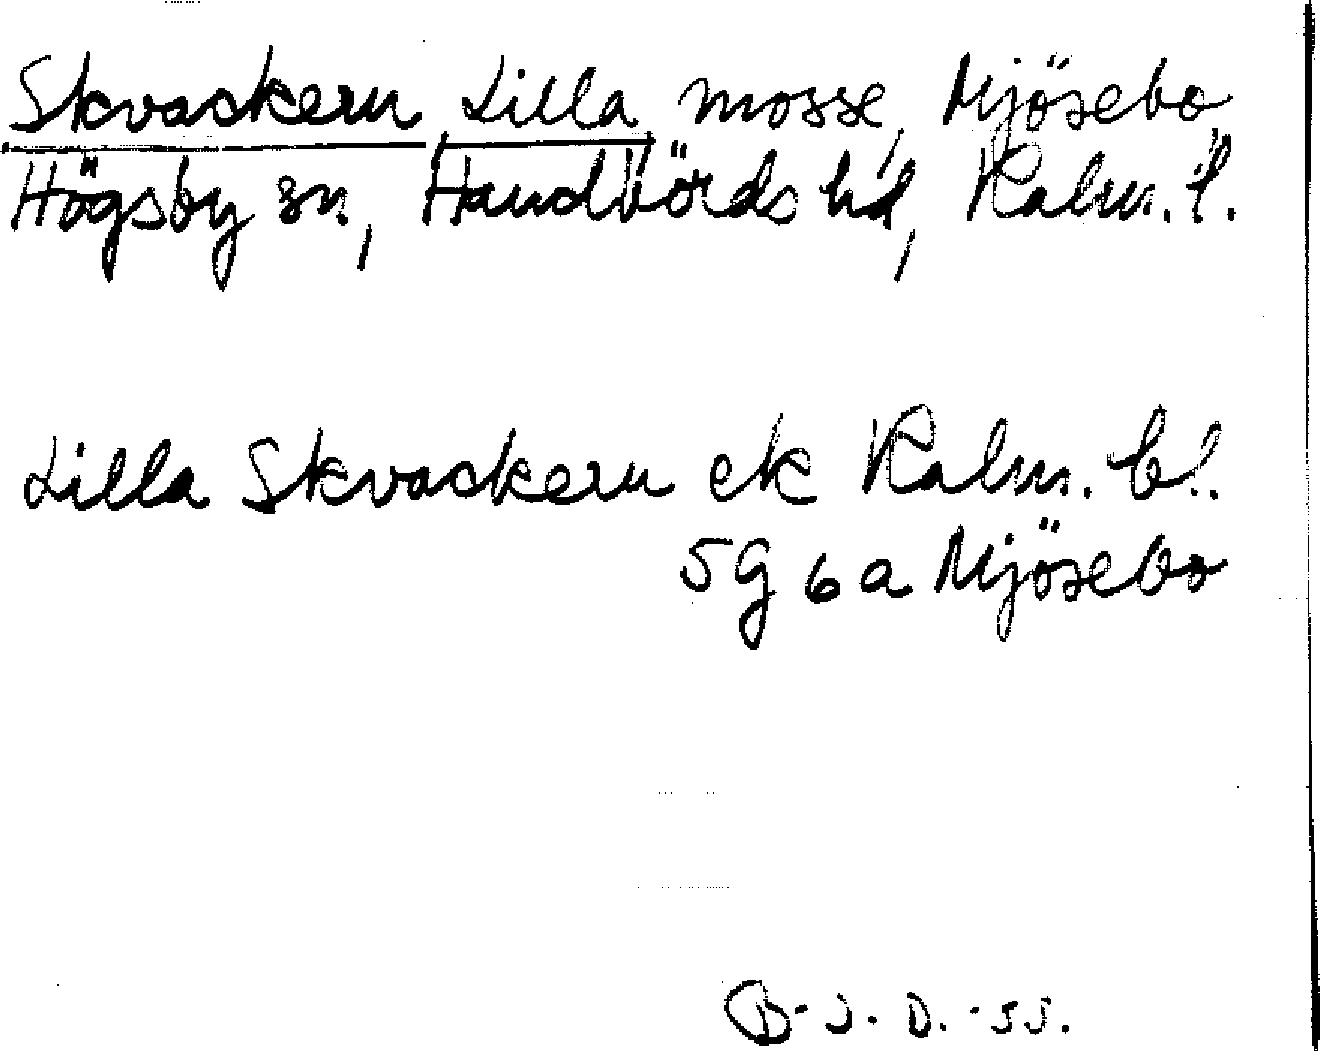 Skvackern, Lilla, mosse, Mjösebo,
Högsby sn, Handbörds hd, Kalm. l.
Lilla Skvackern ek Kalm. l.
5G 6a Mjösebo
B-J. D. -55.